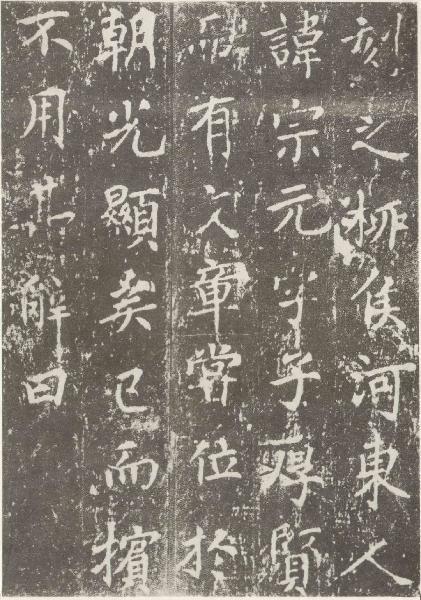 刻之柳侯河東人
諱宗元字子厚賢
而有文章嘗位於
朝光顯矣已而擯
不用其辭曰